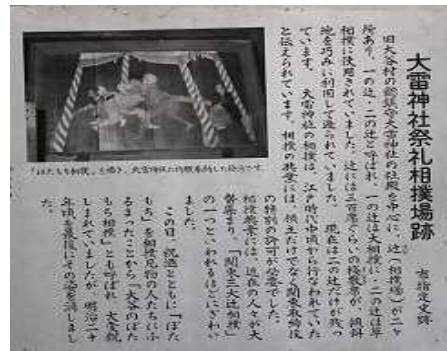 大雷神社祭礼相撲場跡
市指定史跡
旧大谷村の総鎮守大雷神社の社殿を中心に、辻(相撲場)が二ケ
所あり、一の辻・二の辻と呼ばれ、一の辻は大相撲に、二の辻は草
相撲に使用されていました。辻には三百席ぐらいの桟敷席が、傾斜
地を巧みに利用して造られていました。現在は二の辻だけが残っ
ています。大雷神社の相撲は、江戸時代中頃から行なわれていた
と伝えられています。相撲の興業には、領主だけでなく関東取締役
の特別の許可が必要でした。
相撲興業には、近在の人々が大
勢寄り、「関東三大辻相撲」
の一つといわれるほどにぎわい
ました。
この日、祝酒とともに「ぼた
もち」を相撲見物の人たちにふ
るまったことから「大谷のぼた
もち相撲」とも呼ばれ、大変親
しまれていましたが、明治二十
年頃を最後にその姿を消しまし
た。
「ぼたもち相撲」を描き、大雷神社に